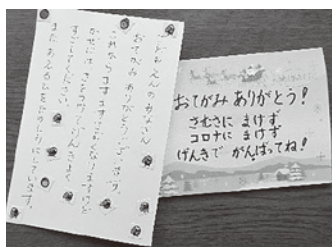 こどもえんのみなさん
おてがみ ありがとうございます。
これから ますます さむくなりますけど
かぜには きをつけて げんきに
すごしてください。
また あえる日を たのしみにしています。
おてがみ ありがとう!
さむさに まけず
コロナに まけず
げんきで がんばってね!